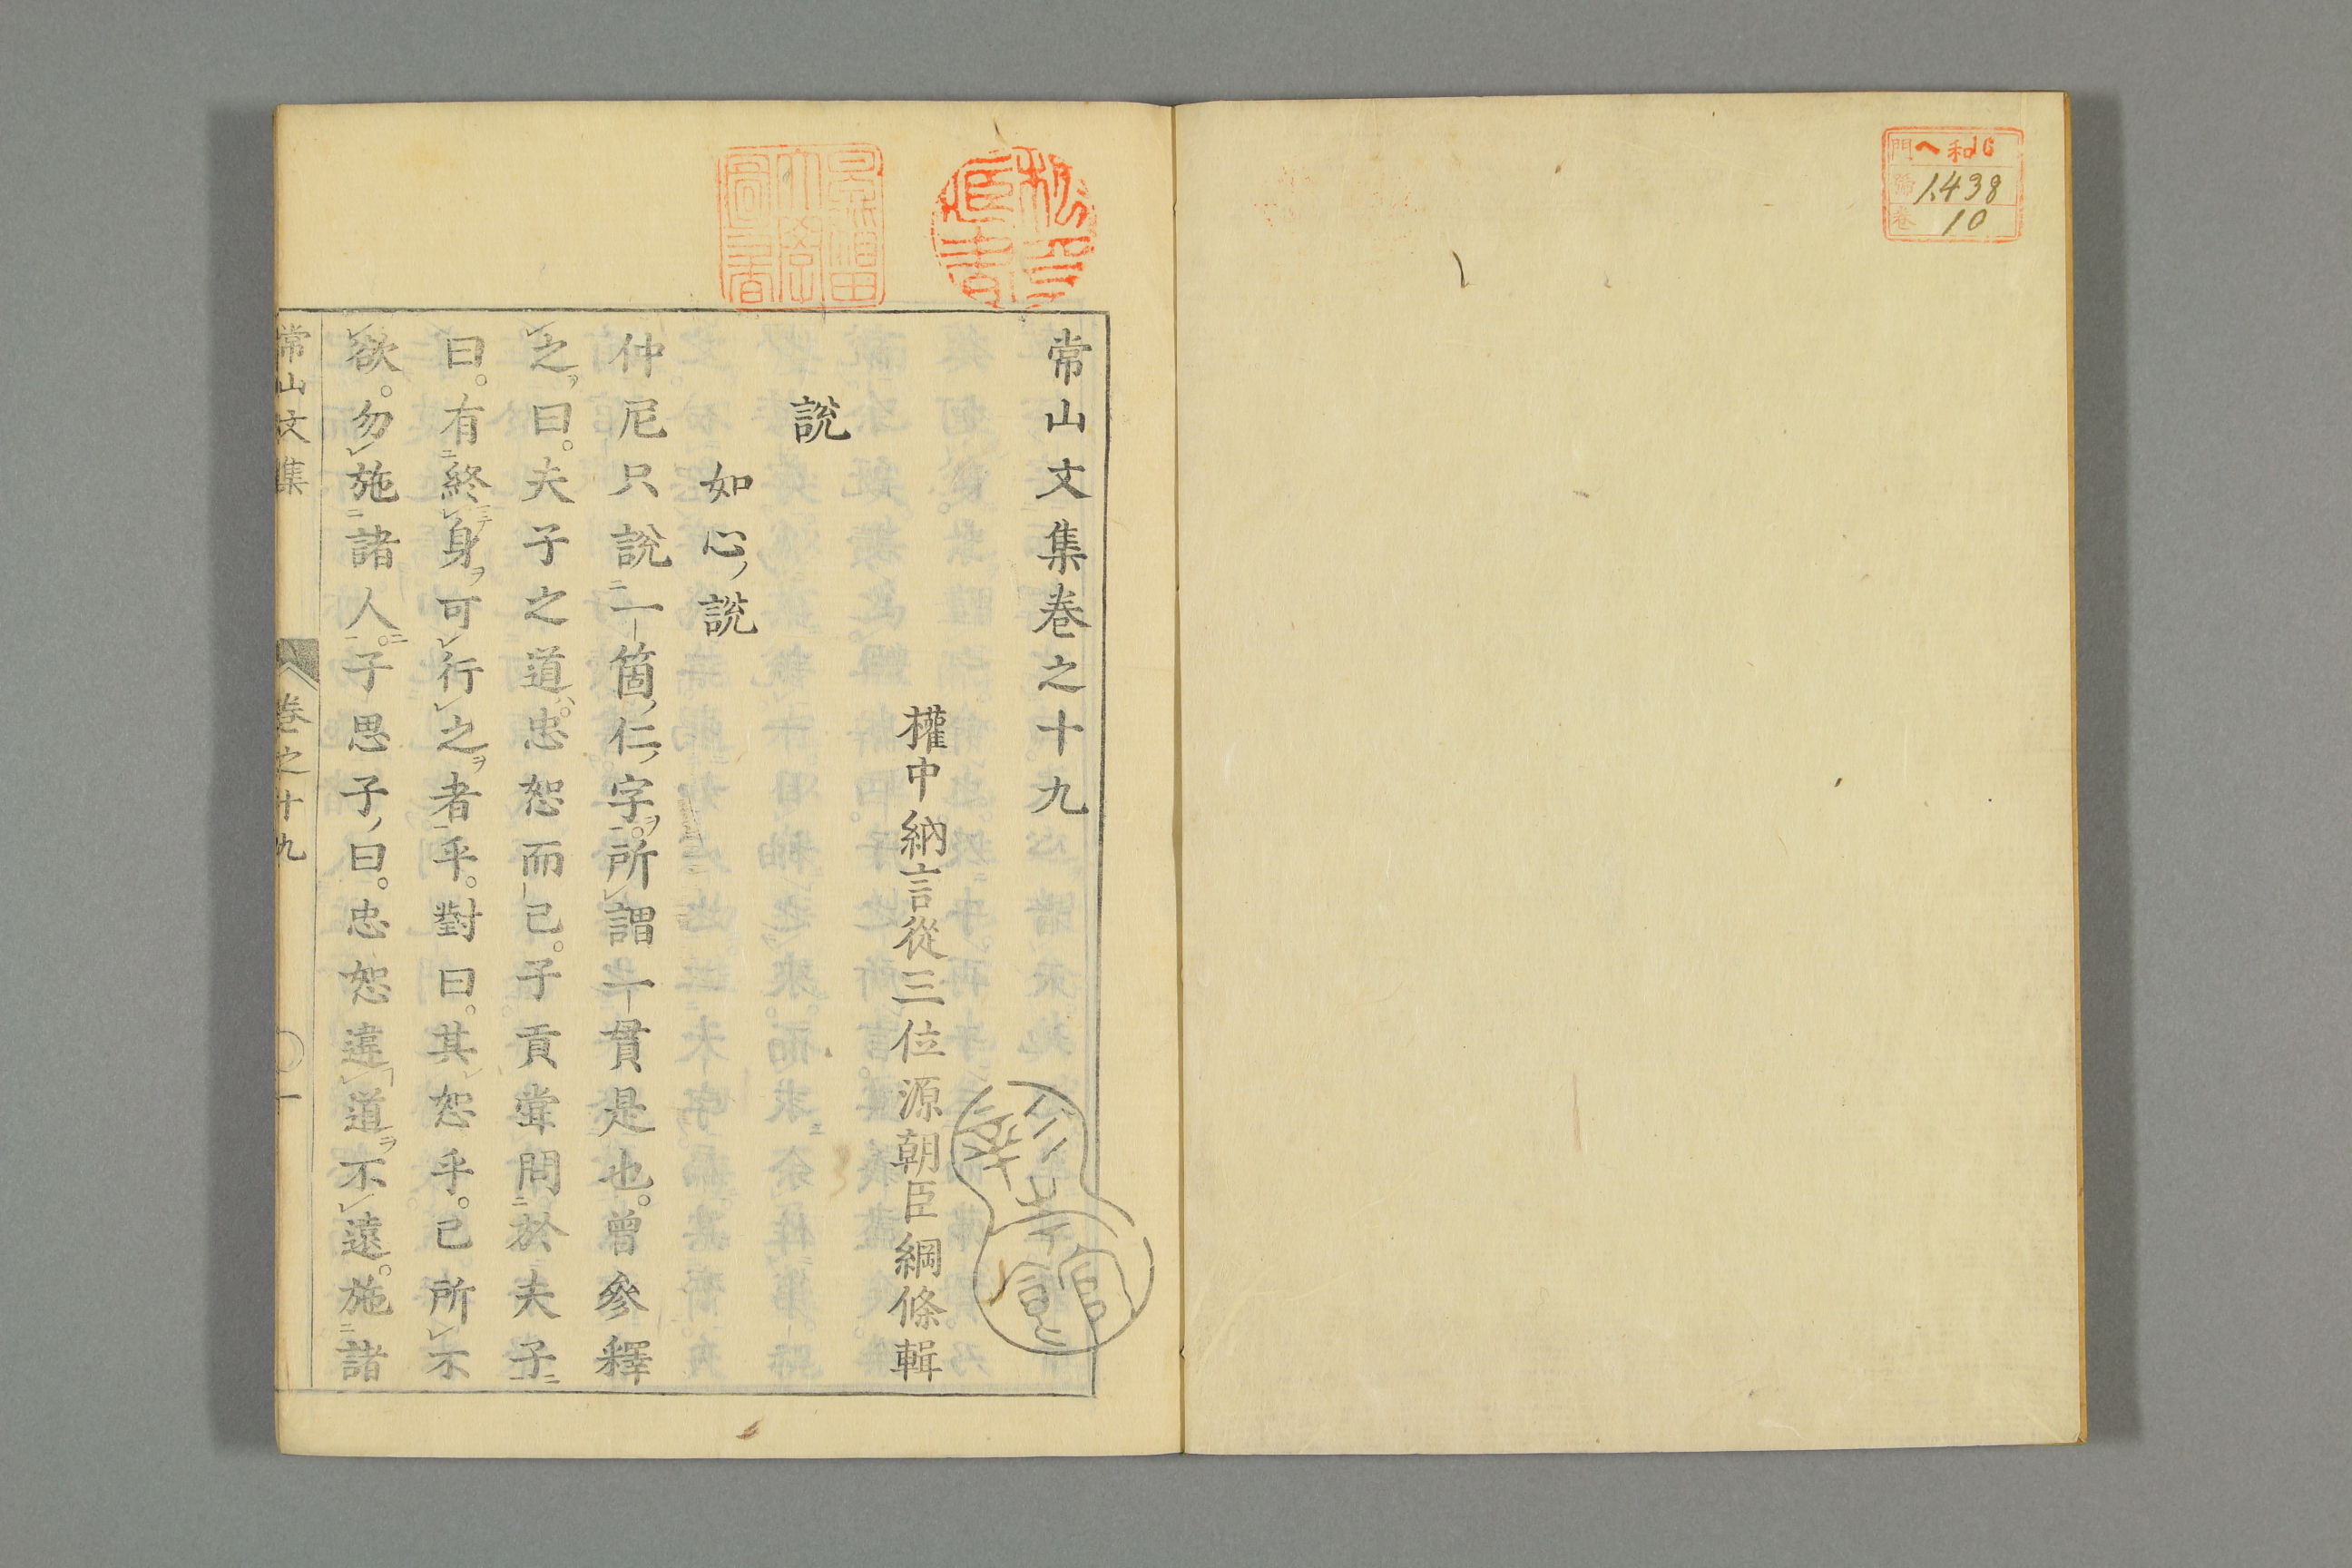 門 ヘ 和 16
號 1438
巻 10
常山文集巻之十九
權中納言從三位源朝臣綱條輯
說
如心ノ說
仲尼只說一箇仁字。所謂一貫是也。曾參釋
之曰。夫子之道。忠恕而已。子貢甞問於夫子
曰。有終身可行之者乎。對曰。其恕乎。己所不
欲。勿施諸人。子思子曰。忠恕違道不遠。施諸
常山文集 巻之十九 一
早稲田大學圖書